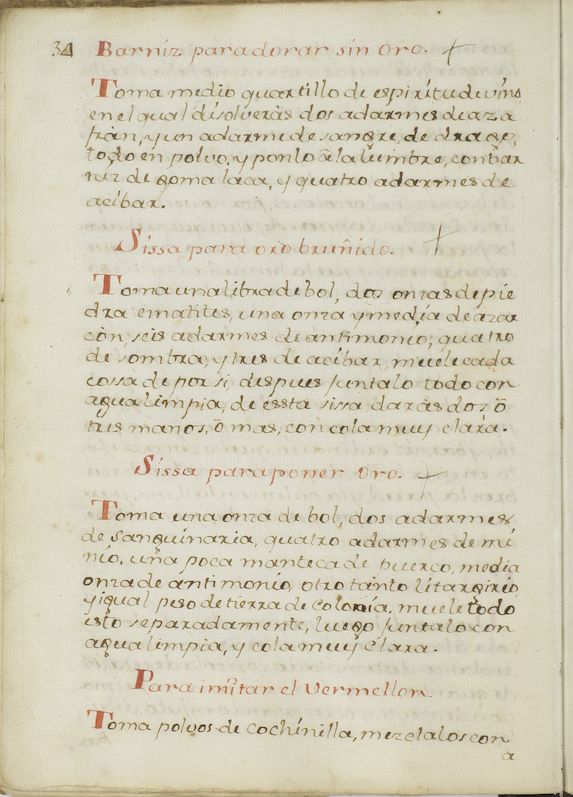 34 Barniz para dorar sin oro.
Toma medio quartillo de espiritu de vino
en el qual disolveràs dos adarmes de aza
fràn, y un adarme de sangre, de drago,
todo en polvo, y ponlo à la lumbre, con bar
niz de goma laca, y quatro adarmes de
acibar.
Sissa para oro bruñido.
Toma una libra de bol, dos onzas de pie
dra ematites, una onza y media de azar
còn, seis adarmes de antimonio, quatro
de sombra, y tres de acibar, muele cada
cossa de por si despues juntalo todo con
agua limpia, de essta sissa daràs dos, ò
tres manos, ò mas, con cola muy clara.
Sissa para poner oro.
Toma una onza de bol, dos adarmes
de sanguinaria, quatro adarmes de mi
nio, uña poca manteca de puerco, media
onza de antimonio, otro tanto litargirio,
y igual peso de tierra de Colonia, muele todo
esto separadamente, luego juntalo con
agua limpia, y cola muy clara.
Para imitar el Vermellon.
Toma polvos de cochinilla, mezclalos con
a